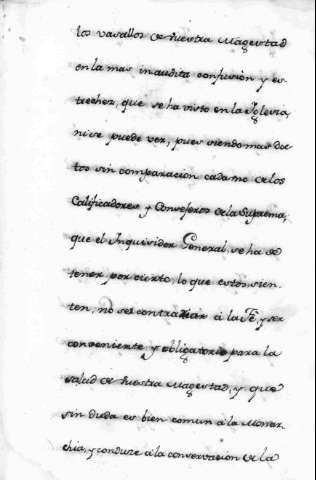 los vasallos de Nuestra Magestad
en la mas inaudita confusion y es-
trechez, que se ha visto en la Iglesia,
ni se puede ver, pues siendo mas doc-
tos sin comparacion cada uno de los
Calificadores y Consejeros de la Suprema,
que el Inquisidor General, se ha de
tener por cierto, lo que estos sien-
ten, no ser contrario á la Fé, y ser
conveniente y obligatorio para la
salud de Nuestra Magestad, y que
sin duda es bien comun á la Monar-
chia, y conduce á la conservacion de la